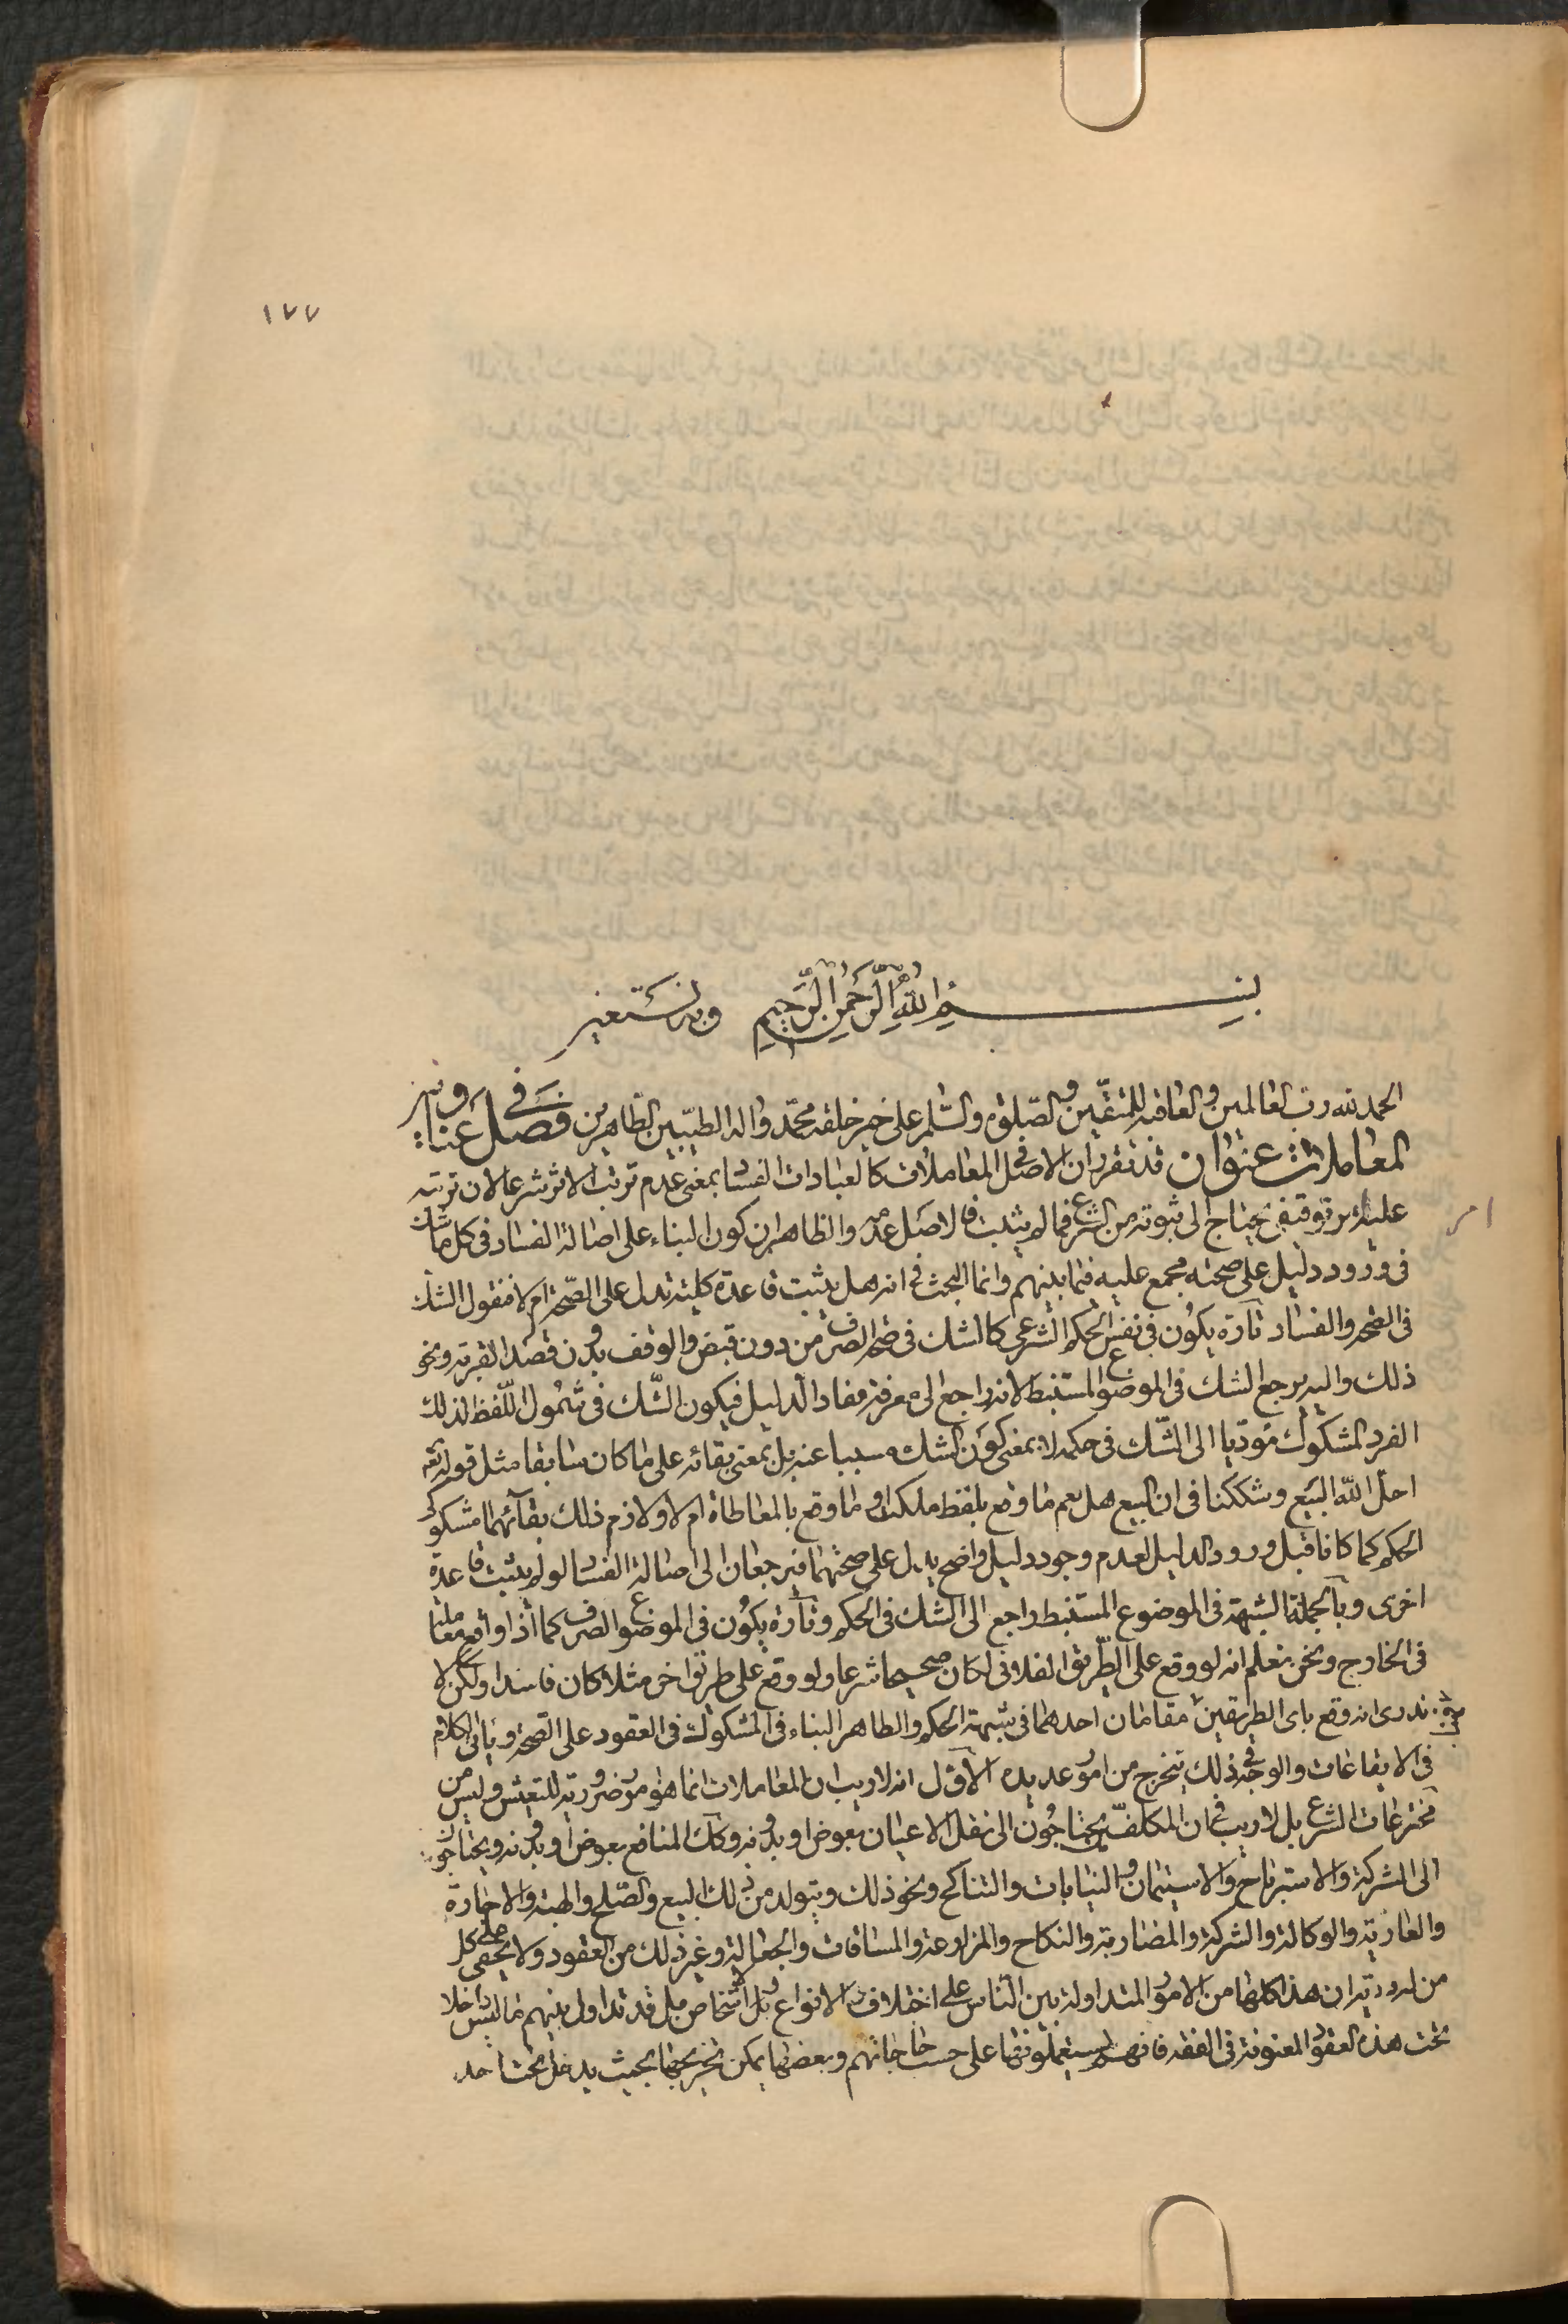 ١٧٧
بسم الله الرحمن الرحيم وبه نستعين
الحمد لله رب العالمين والعاقبة للمتقين والصلوة والسلم على خير خلقه محمد واله الطيبين الطاهرين فصل في عناوين
المعاملات عنوان قد تقرر ان الاصل في المعاملات كالعبادات الفساد بمعنى عدم ترتب الاثر شرعا لان ترتبه
عليه امر توقيفي يحتاج الى ثبوته من الشرع فما لم يثبت فالاصل عدمه والظاهر ان كون البناء على اصالة الفساد في كل ما شك
في ورود دليل على صحته مجمع عليه فيما بينهم وانما البحث في انه هل يثبت قاعدة كلية تدل على الصحة ام لا فنقول الشك
في الصحة والفساد تارة يكون في نفس الحكم الشرعي كالشك في صحة الصرف من دون قبض والوقف بدون قصد القربة ونحو
ذلك واليه يرجع الشك في الموضوع المستنبط لانه راجع الى معرفة مفاد الدليل فيكون الشك في شمول اللفظ لذلك
الفرد المشكوك مؤديا الى الشك في حكمه لا بمعنى كون الشك مسببا عنه بل بمعنى بقائه على ما كان سابقا مثل قوله تعه
احل الله البيع وشككنا في ان البيع هل يعم ما وقع بلفظ ملكت او ما وقع بالمعاطاة ام لا ولازم ذلك بقائهما مشكوكي
الحكم كما كانا قبل ورود الدليل لعدم وجود دليل واضح يدل على صحتهما فيرجعان الى اصالة الفساد لو لم يثبت قاعدة
اخرى وبالجملة الشبهة في الموضوع المستنبط راجع الى الشك في الحكم وتارة يكون في الموضوع الصرف كما اذا وقع معاملة
في الخارج ونحن نعلم انه لو وقع على الطريق الفلاني لكان صحيحا شرعا ولو وقع على طريق اخر مثلا كان فاسدا ولكن لا
ندرى انه وقع باى الطريقين مقامان احدهما في شبهة الحكم والظاهر البناء في المشكوك في العقود على الصحة وياتى الكلام
في الايقاعات والوجه في ذلك يتخرج من امور عديدة الاول انه لا ريب ان المعاملات انما هو امور ضرورية للتعيش وليس من
مخترعات الشرع بل لا ريب في ان المكلفين يحتاجون الى نقل الاعيان بعوض او بدونه وكك المنافع بعوض او بدونه ويحتاجون
الى الشركة والاسترباح والاستيمان والنيابات والتناكح ونحو ذلك ويتولد من ذلك البيع والصلح والهبة والاجارة
والعارية والوكالة والشركة والمضاربة والنكاح والمزارعة والمساقات والجعالة وغير ذلك من العقود ولا يخفى على كل
من له درية ان هذا كلها من الامور المتداولة بين الناس على اختلاف الانواع بل الاشخاص بل قد تداول بينهم ما ليس داخلا
تحت هذه العقود المعنونة في الفقه فانهم يستعملونها على حسب حاجاتهم وبعضها يمكن تخريجها بحيث يدخل تحت احد